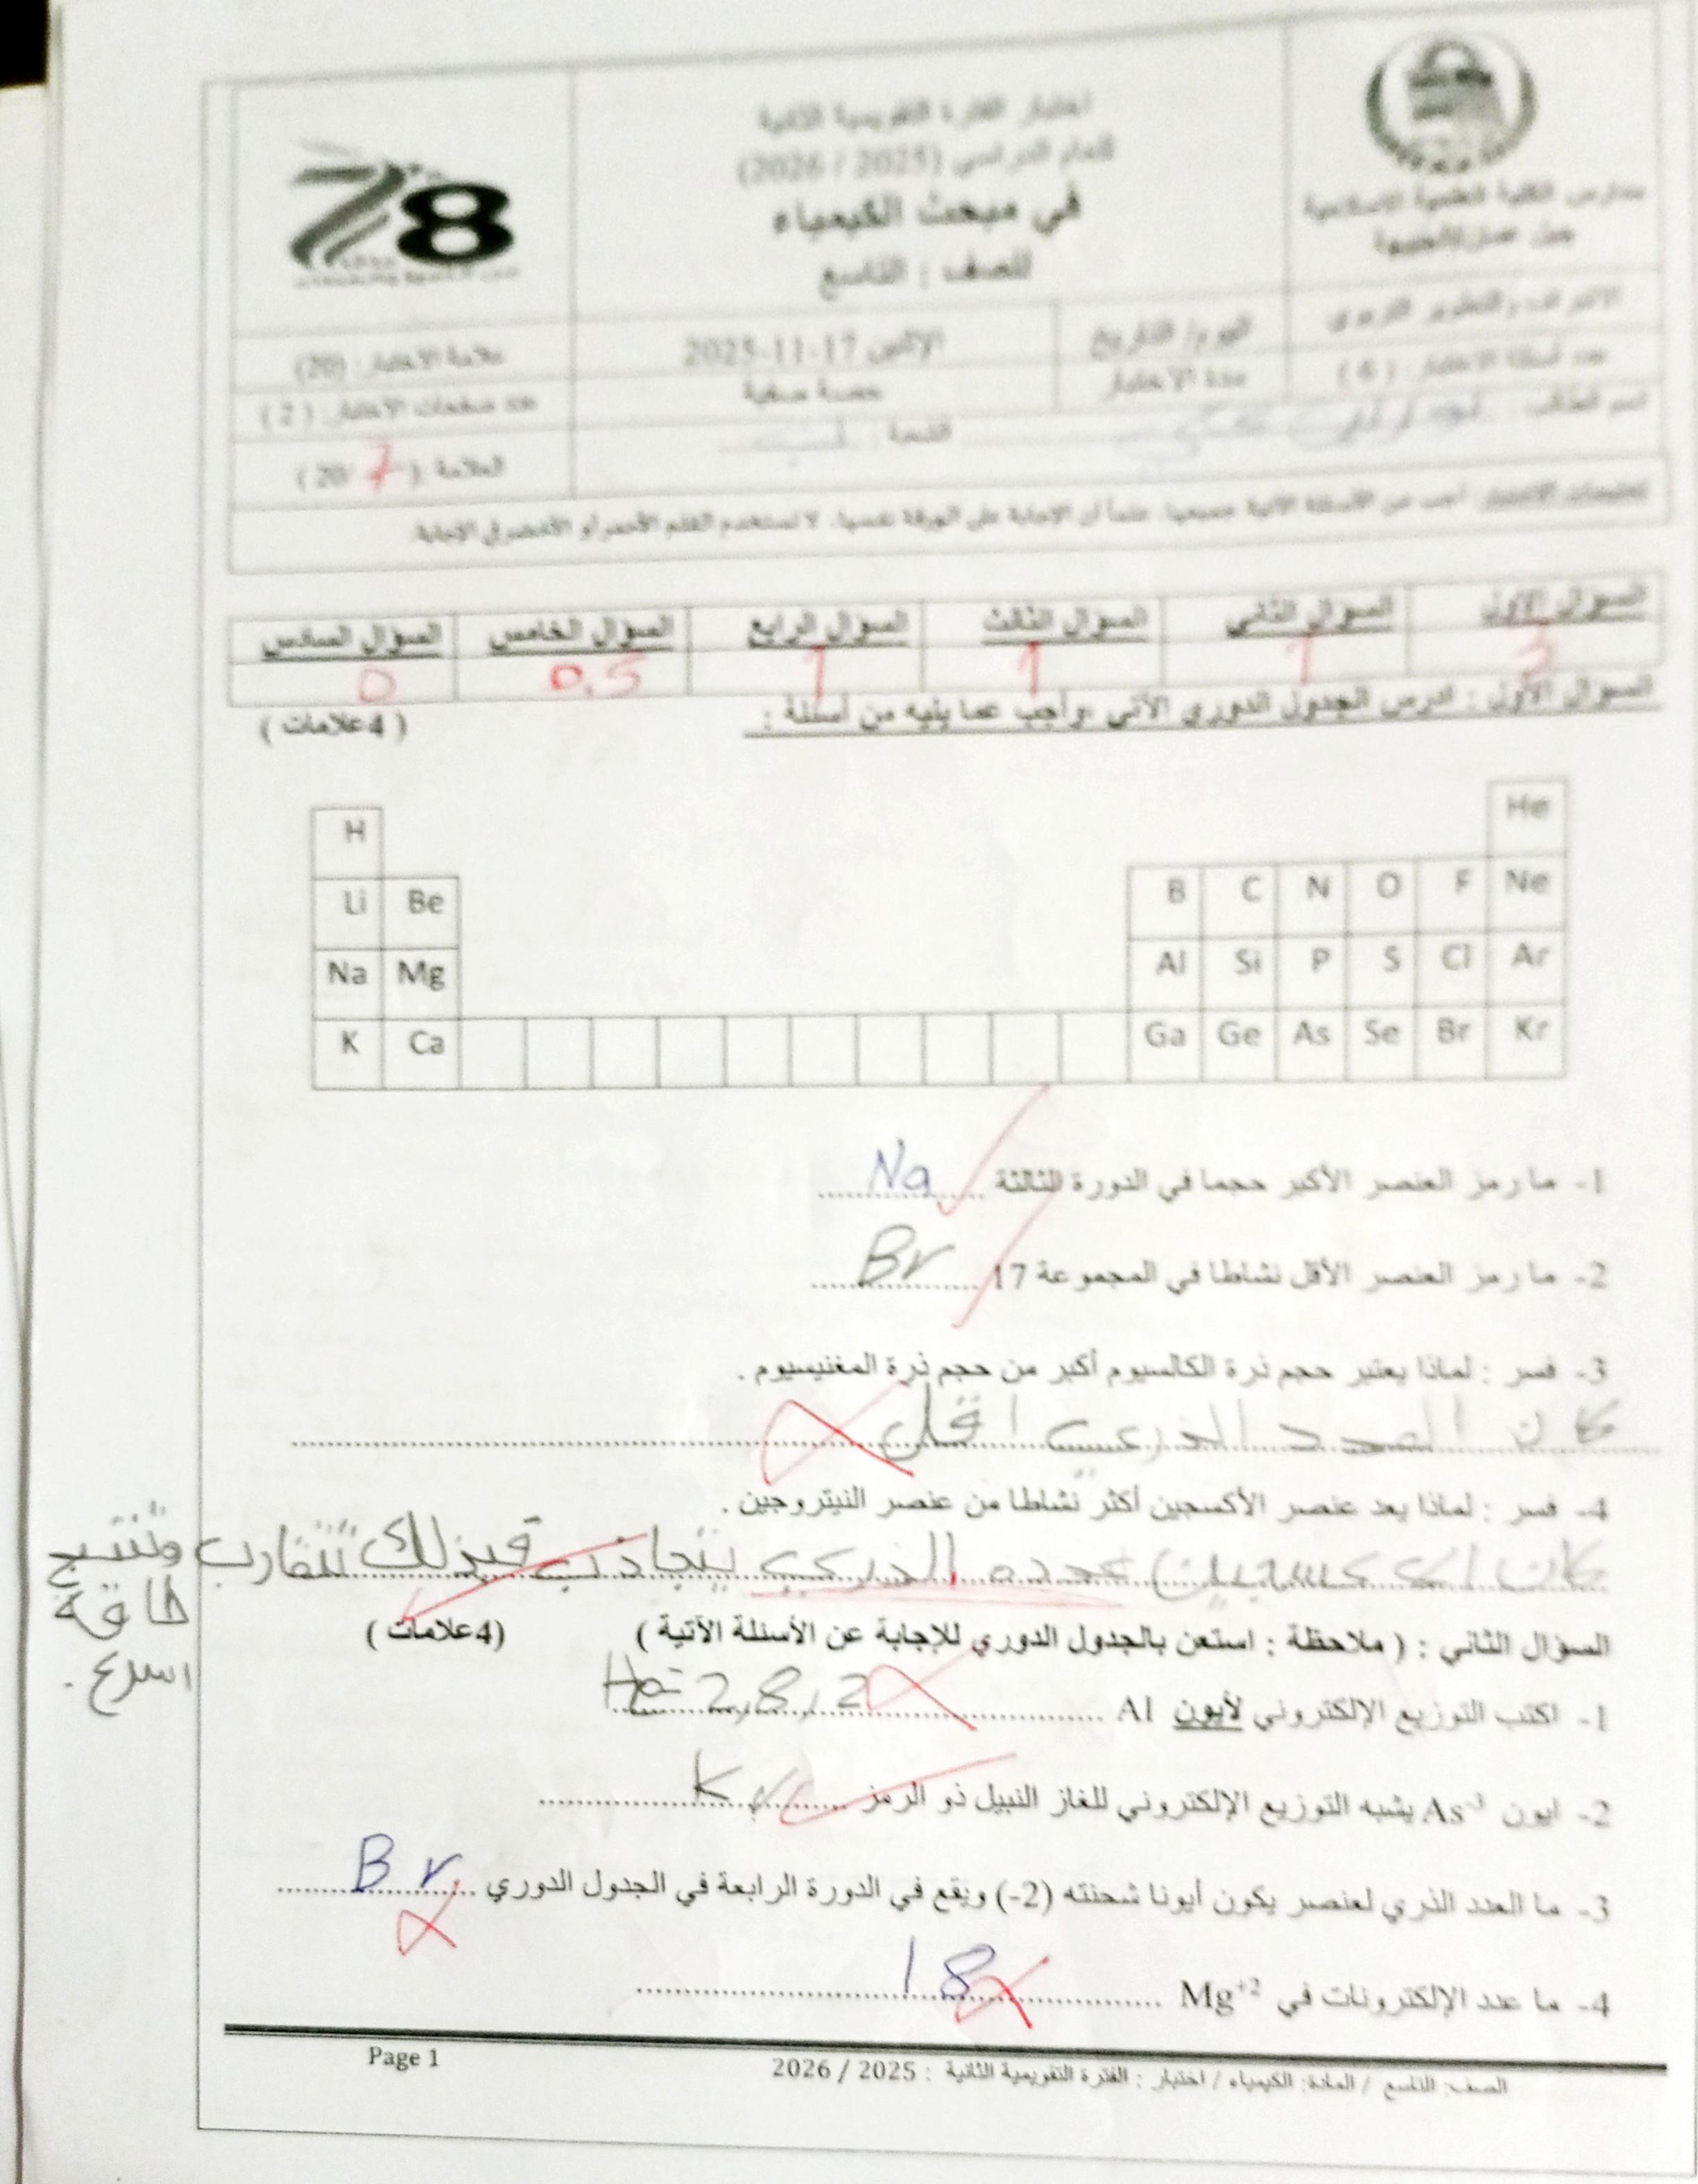 اختبار الفترة التقويمية الثانية
للعام الدراسي (2025 / 2026)
في مبحث الكيمياء
للصف : التاسع
مدارس الكلية العلمية الاسلامية
78
الاشراف والتطوير التربوي
اليوم/ التاريخ
الاثنين 17-11-2025
علامة الاختبار: (20)
عدد أسئلة الاختبار: (6)
مدة الاختبار
حصة صفية
عدد صفحات الاختبار: (2)
اسم الطالب:
الشعبة:
العلامة: (7 20)
تعليمات الاختبار: أجب عن الأسئلة الآتية جميعها، علماً أن الإجابة على الورقة نفسها، لا تستخدم القلم الأحمر أو الأخضر في الإجابة.
السؤال الأول السؤال الثاني السؤال الثالث السؤال الرابع السؤال الخامس السؤال السادس
3 1 1 1 0.5 0
السؤال الأول : ادرس الجدول الدوري الآتي ،وأجب عما يليه من أسئلة : (4علامات)
H He
Li Be B C N O F Ne
Na Mg Al Si P S Cl Ar
K Ca Ga Ge As Se Br Kr
1- ما رمز العنصر الأكبر حجما في الدورة الثالثة Na
2- ما رمز العنصر الأقل نشاطا في المجموعة 17 Br
3- فسر : لماذا يعتبر حجم ذرة الكالسيوم أكبر من حجم ذرة المغنيسيوم .
كان العدد الذري اقل
4- فسر : لماذا يعد عنصر الأكسجين أكثر نشاطا من عنصر النيتروجين .
عدده الذري يتجاذب فبذلك تتقارب وتنتج
طاقة
اسرع.
السؤال الثاني : ( ملاحظة : استعن بالجدول الدوري للإجابة عن الأسئلة الآتية ) (4علامات)
1- اكتب التوزيع الإلكتروني لأيون Al 2,8,2
2- ايون As⁻³ يشبه التوزيع الإلكتروني للغاز النبيل ذو الرمز Kr
3- ما العدد الذري لعنصر يكون أيونا شحنته (2-) ويقع في الدورة الرابعة في الجدول الدوري Br
4- ما عدد الإلكترونات في Mg⁺² 18
الصف: التاسع / المادة: الكيمياء / اختبار : الفترة التقويمية الثانية : 2025 / 2026 Page 1